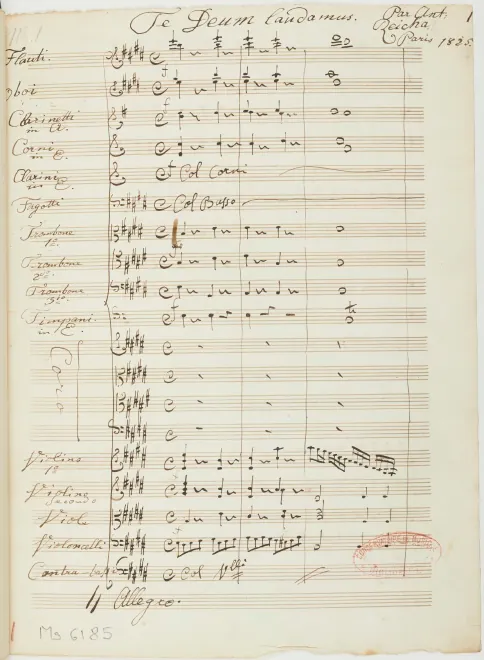 No. 1
Te Deum laudamus.
Par Ant:
Reicha
Paris 1825.
1
Flauti.
Oboi
Clarinetti
in A.
Corni
in E.
Clarini
in E.
Col Corni
Fagotti
Col Basso
Trombone
1º.
Trombone
2º.
Trombone
3º.
Timpani
in E.
Coro
Violino
1º
Violino
secondo
Viole
Violoncelli
Contra bassi
Col Vlli
Allegro.
Ms 6185